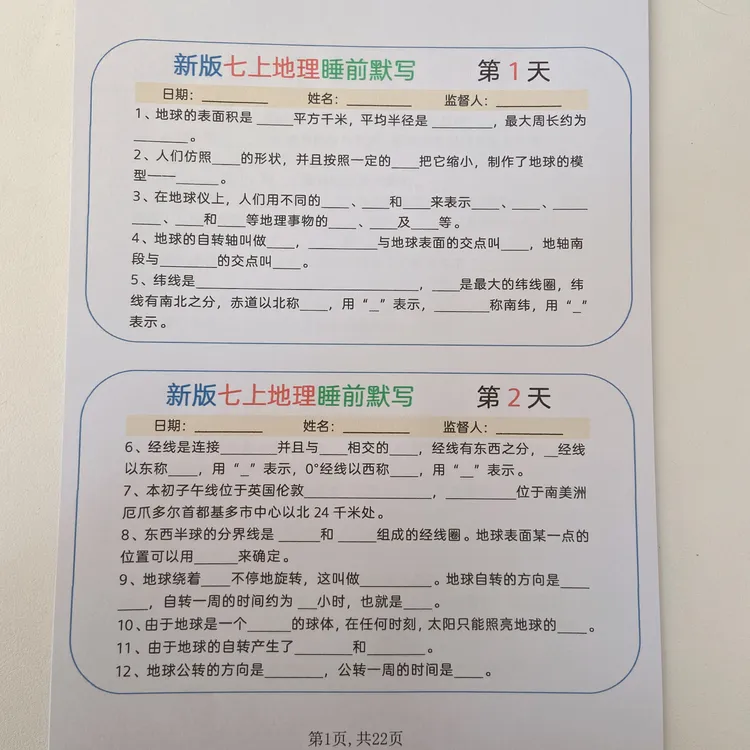 新版七上地理睡前默写 第1天
日期：________ 姓名：________ 监督人：________
1、地球的表面积是_____平方千米，平均半径是________，最大周长约为
________。
2、人们仿照____的形状，并且按照一定的____把它缩小，制作了地球的模
型——______。
3、在地球仪上，人们用不同的____、____和____来表示____、____、_____
_____、____和____等地理事物的____、____及____等。
4、地球的自转轴叫做____，__________与地球表面的交点叫____，地轴南
段与________的交点叫____。
5、纬线是________________________________，____是最大的纬线圈，纬
线有南北之分，赤道以北称____，用“_”表示，________称南纬，用“_”
表示。
新版七上地理睡前默写 第2天
日期：________ 姓名：________ 监督人：________
6、经线是连接________并且与____相交的____，经线有东西之分，__经线
以东称____，用“_”表示，0°经线以西称____，用“__”表示。
7、本初子午线位于英国伦敦__________________，__________位于南美洲
厄瓜多尔首都基多市中心以北 24 千米处。
8、东西半球的分界线是______和______组成的经线圈。地球表面某一点的
位置可以用______来确定。
9、地球绕着____不停地旋转，这叫做__________。地球自转的方向是____
____，自转一周的时间约为__小时，也就是____。
10、由于地球是一个______的球体，在任何时刻，太阳只能照亮地球的____。
11、由于地球的自转产生了________和________。
12、地球公转的方向是________，公转一周的时间是____。
第1页，共22页